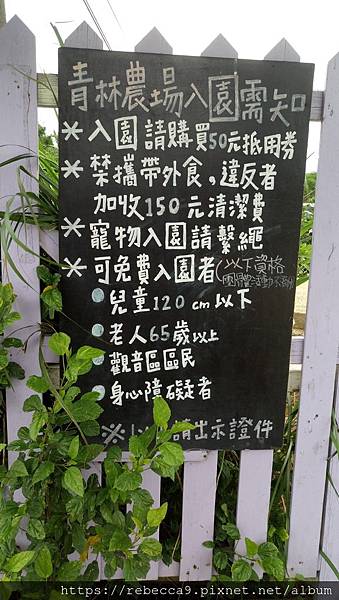 青林農場入園需知
※入園請購買50元抵用券
※禁攜帶外食，違反者
加收150元清潔費
※寵物入園請繫繩
※可免費入園者(以下資格
兒童120cm以下
老人65歲以上
觀音區區民
身心障礙者
※以上請出示證件
https://rebecca9.pixnet.net/blog